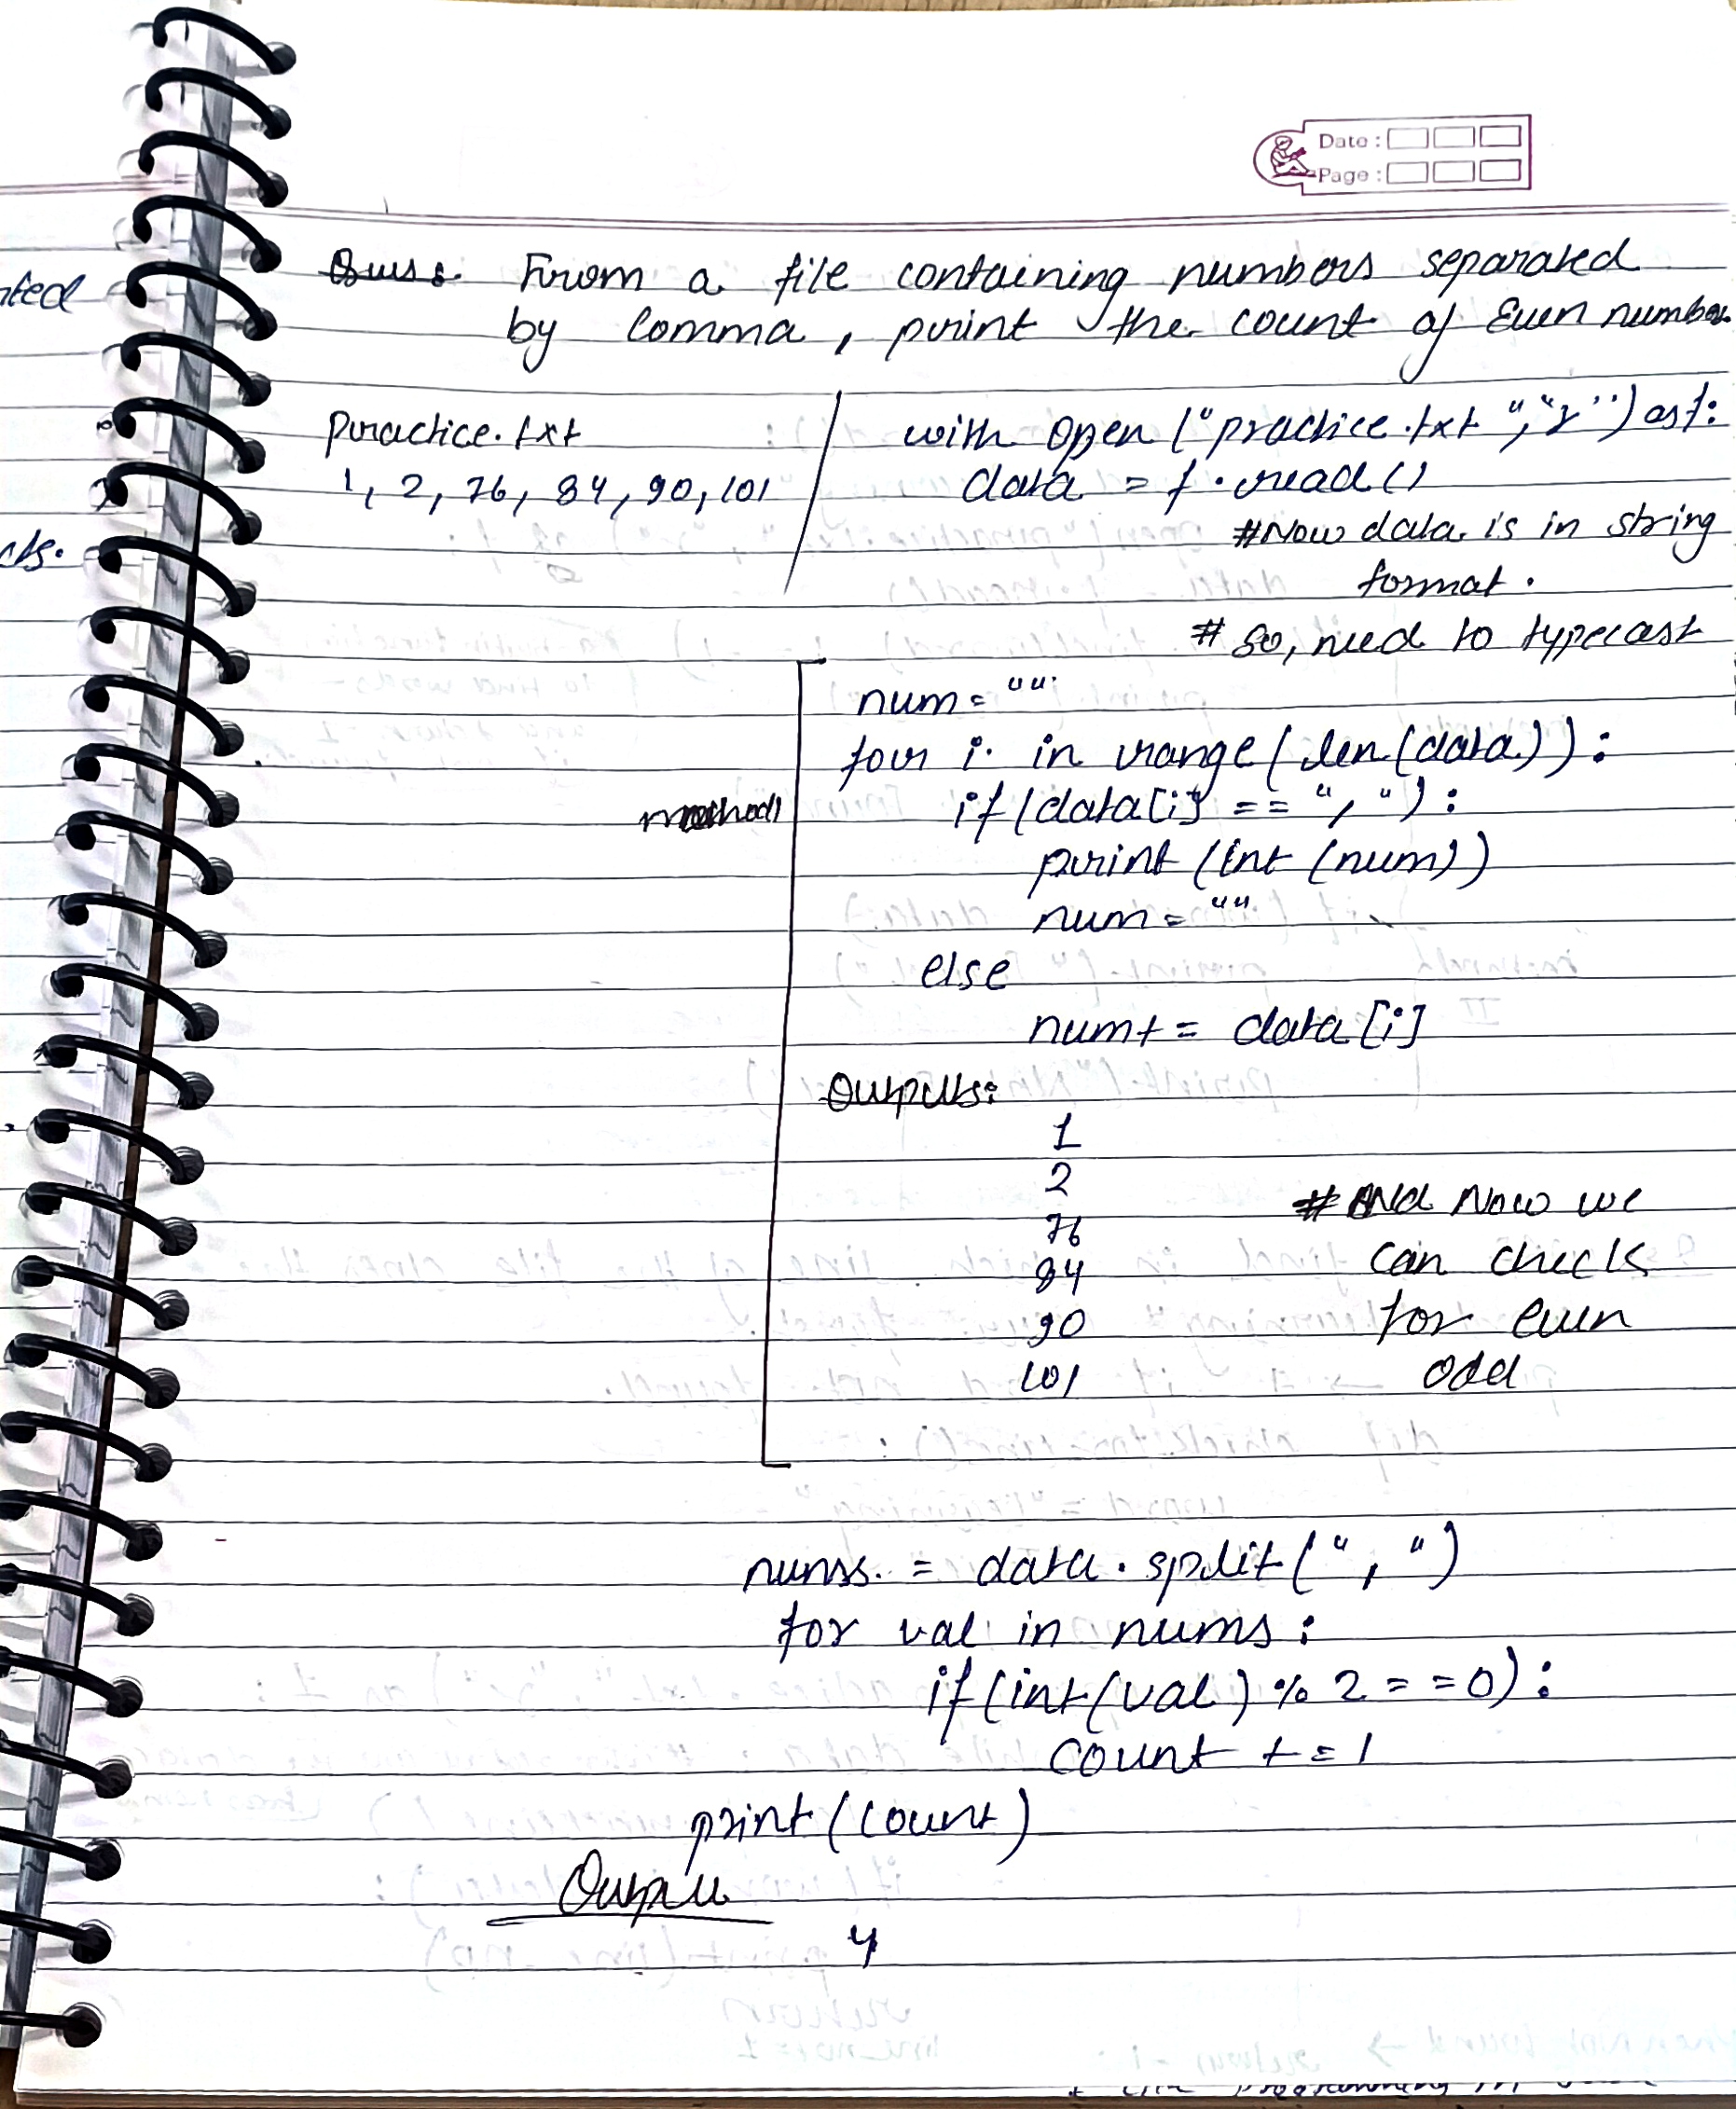 Date :
Page :
Ques: From a file containing numbers separated
by comma, print the count of Even number
Practice.txt
1, 2, 76, 84, 90, 101
with open ("practice.txt", "r") as f:
data = f.read()
#Now data is in string
format.
# so, need to typecast
method
num = ""
for i in range(len(data)):
if(data[i] == ","):
print(int(num))
num = ""
else
num+= data[i]
Outputs:
1
2
76
84
90
101
# And Now we
can check
for even
odd
nums = data.split(",")
for val in nums:
if(int(val) % 2 == 0):
count += 1
print(count)
Output
4